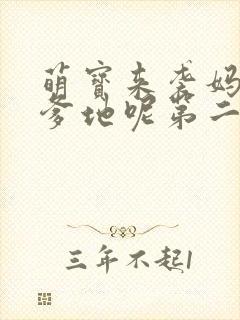 萌宝来袭妈
爹地呢第二
三年不起1